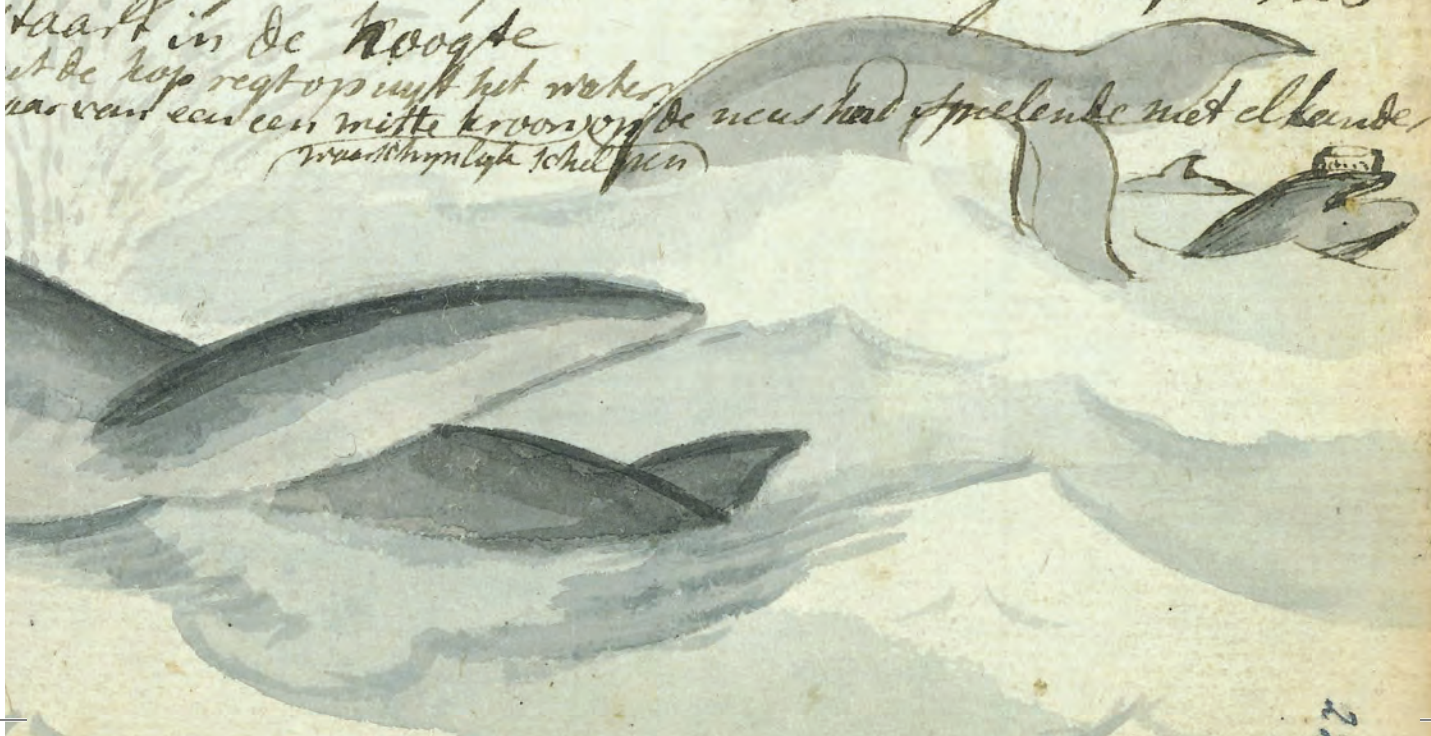 taart in de hoogte
it de kop regtop uyt het water
aar van een een witte kroon op de neus had speelende met elkander
waarschynlyk schelpen